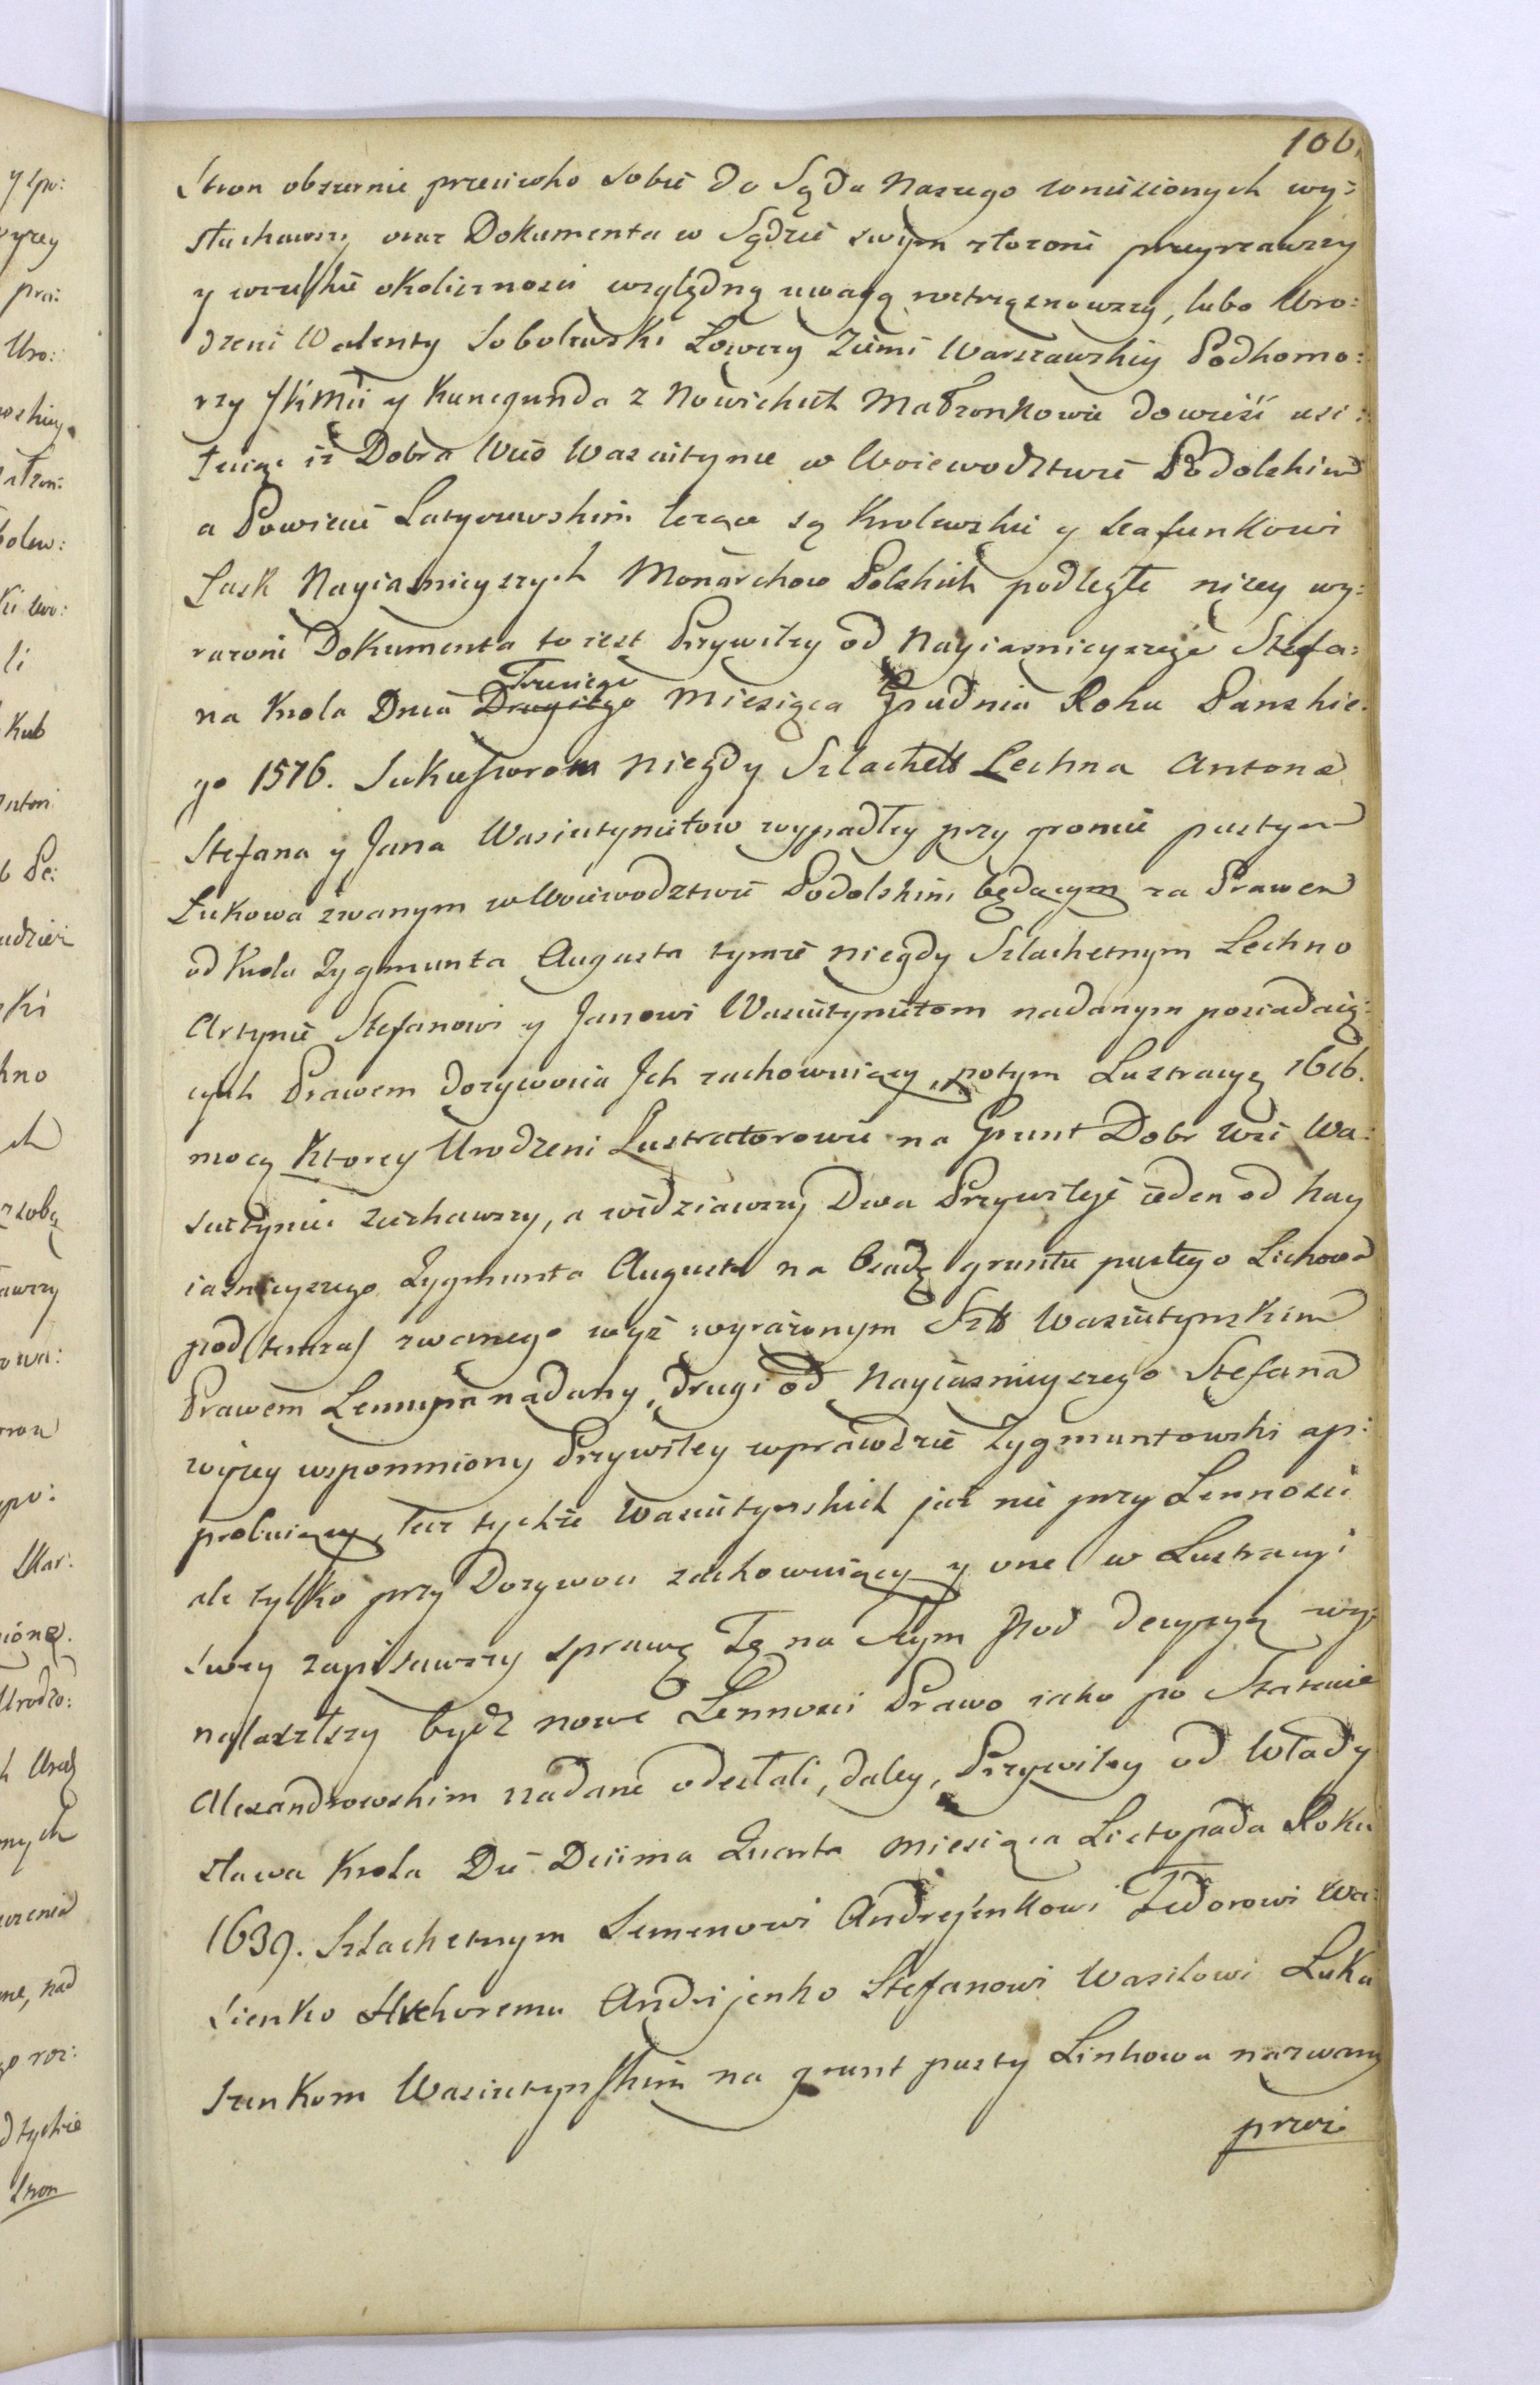 106.
Stron obszernie przeciwko sobie do Sądu Naszego wniesionych wy:
słuchawszy oraz Dokumenta w Sądzie swym złożone przeyrzawszy
y wszelkie okoliczności względną uwagą roztrząsnąwszy, lubo Uro:
dzeni Walenty Sobolewski Łowczy Ziemi Warszawskiey Podkomo:
rzy JKMci y Kunegunda z Nowickich Małżonkowie dowieść usi:
łuią iż Dobra Wieś Wasiutynce w Woiewodztwie Podolskim
a Powiecie Latyczewskim leżące są Krolewskie y szafunkowi
Łask Nayiasnieyszych Monarchow Polskich podległe niżey wy:
rażone Dokumenta to iest Przywiley od Nayiasnieyszego Stefa:
na Krola Dnia Drugiego Trzeciego Miesiąca Grudnia Roku Panskie:
go 1576. Sukcessorom niegdy Szlachetn Lechna Antona
Stefana y Jana Wasiutynietow wypadły przy gronie pustym
Łukowa zwanym w Woiewodztwie Podolskim będącym za Prawem
od Krola Zygmunta Augusta tymże niegdy Szlachetnym Lechno
Artynie Stefanowi y Janowi Wasiutynietom nadanym posiadaią:
cych Prawem dożywocia Ich zachowuiący, potym Lustracyą 1616.
mocą Ktorey Urodzeni Lustratorowie na Grunt Dobr Wsi Wa:
siutyniec ziechawszy, a widziawszy Dwa Przywileje ieden od Nay
iasnieyszego Zygmunta Augusta na Osadę gruntu pustego Lichowa
pod ten czas zwanego wyż wyrażonym Szl Wasiutynskim
Prawem Lennym nadany, drugi od Nayiasnieyszego Stefana
wyżey wspomniony Przywiley wprawdzie Zygmuntowski ap:
probuiący, lecz tychże Wasiutynskich już nie przy Lennosci
ale tylko przy Dożywociu zachowuiący y one w Lustracyi
swey zapisawszy sprawę Tę na Seym pod decyzyą wy:
nalazłszy bydź nowe Lennosci Prawo iako po Statucie
Alexandrowskim nadane odesłali, daley, Przywiley od Włady
sława Krola Die Decima Quarta Miesiąca Listopada Roku
1639. Szlachetnym Semenowi Andrejenkowi Fedorowi Wa:
sienko Hrehoremu Andrijenko Stefanowi Wasilowi Luka
szenkom Wasiutynskim na grunt pusty Linkowa nazwany
przez